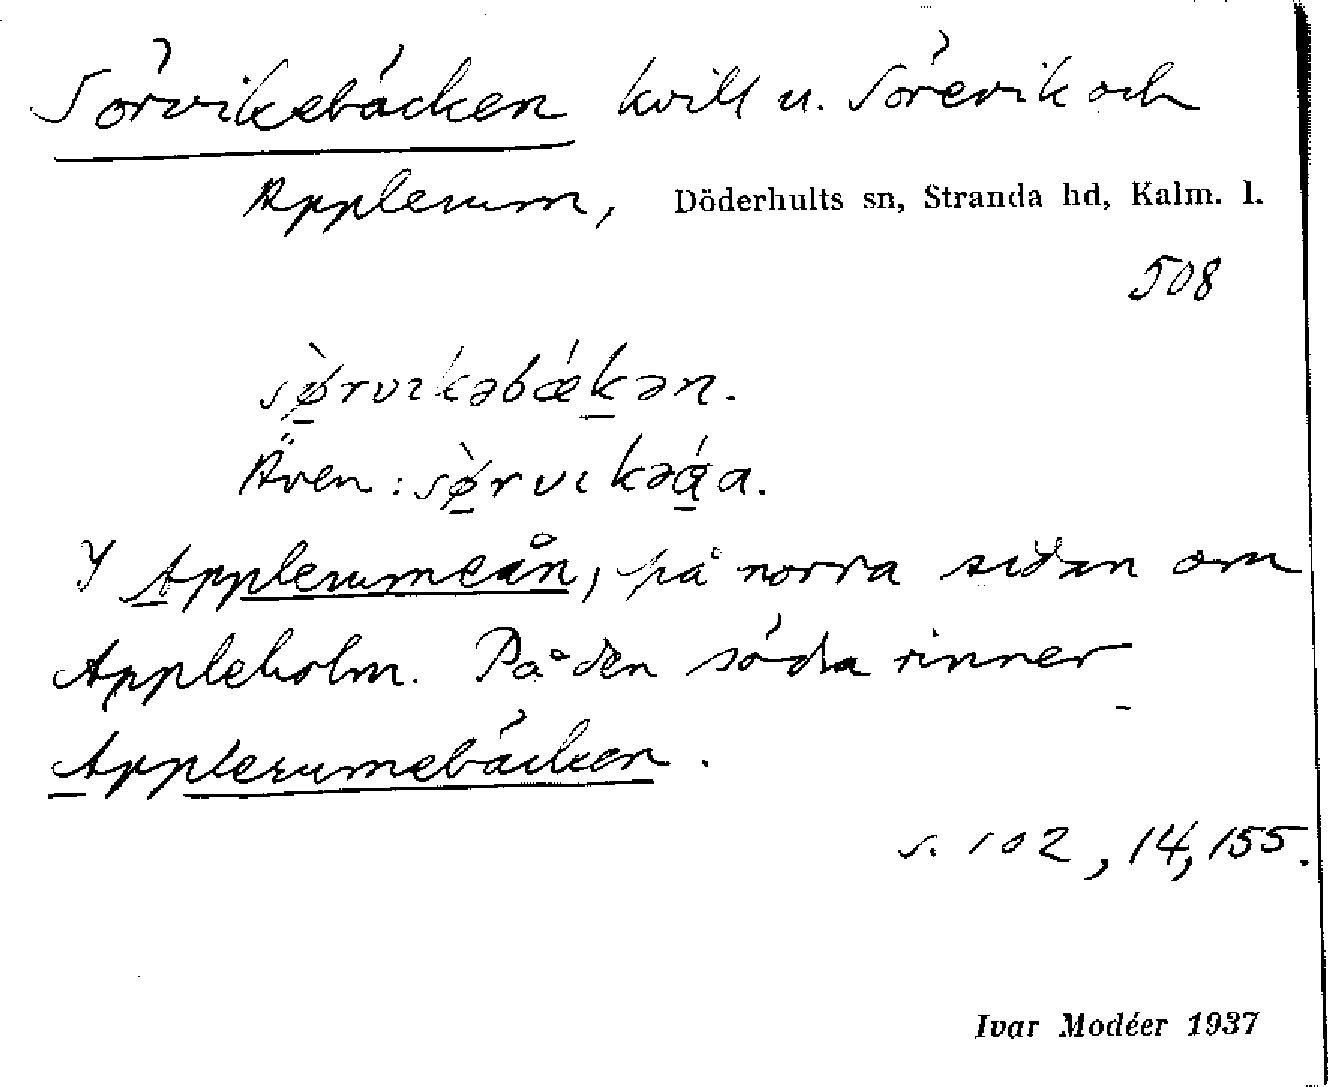 Sörviksbäcken kvill u. Sörevik och
Applerum, Döderhults sn, Stranda hd, Kalm. l.
508
sø̀rvıkəbǽkən.
Även: sø̀rvıkəáa.
I Applerumeån, på norra sidan om
Appleholm. På den södra rinner
Applerumebäcken.
s. 102, 14, 155.
Ivar Modéer 1937